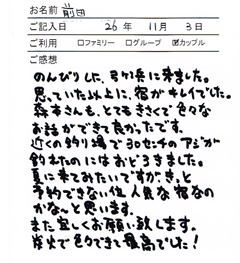 お名前 前田
ご記入日 26 年 11 月 3 日
ご利用 □ファミリー □グループ ☑カップル
ご感想
のんびりした、弓ヶ浜に来ました。
思っていた以上に、宿がキレイでした。
森本さんも、とてもきさくで色々な
お話ができて良かったです。
近くの釣り場で30センチのアジが
釣れたのにはおどろきました。
夏に来てみたいですが、きっと
予約できない位、人気な宿なの
かな〜と思います。
また宜しくお願い致します。
炭火で色々できて最高でした!